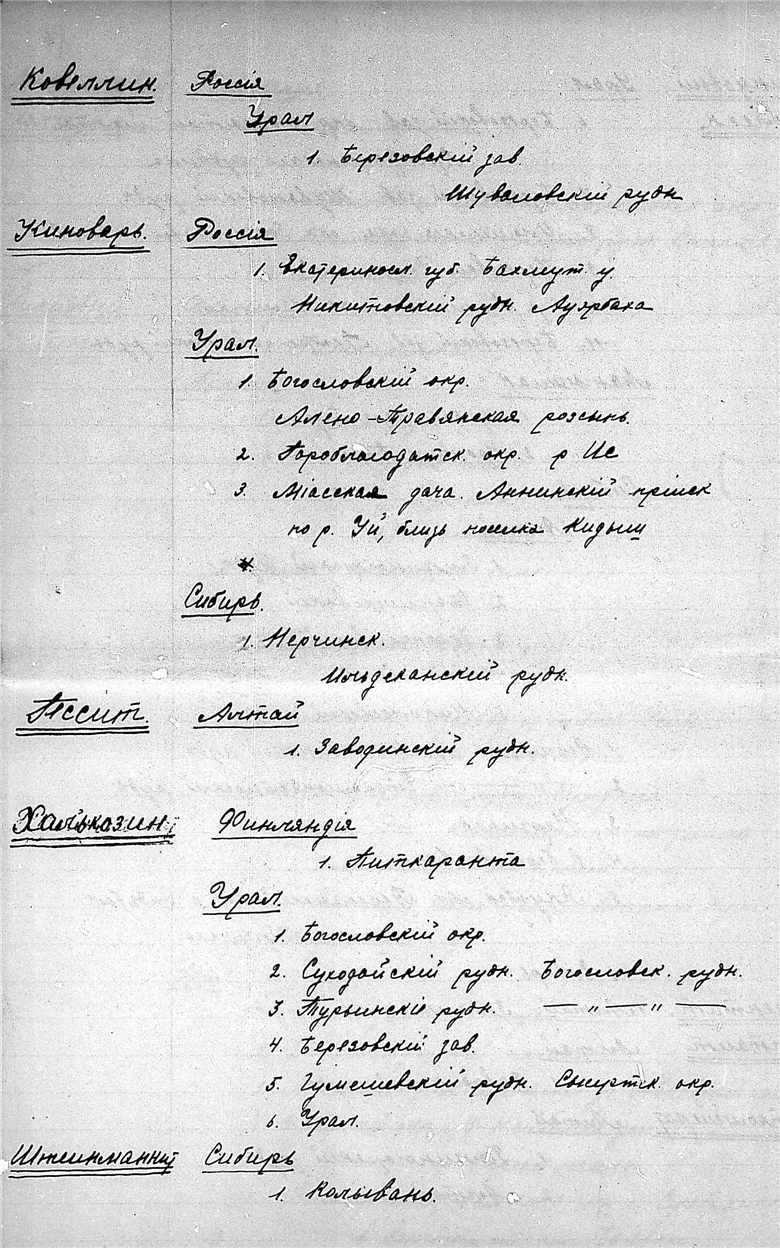 Ковеллин. Россія
Урал
1. Березовскій зав.
Шуваловскій рудн
Киноварь. Россія
1. Екатериносл. губ. Бахмут. у.
Никитовскій рудн. Ауэрбаха
Урал.
1. Богословскій окр.
Алено-Травянская розсыпь.
2. Гороблагодатск. окр. р Ис
3. Міасская дача. Аннинскій пріиск
по р. Уй, близь поселка Кидыш
Сибирь.
1. Нерчинск.
Ильдеканскій рудн.
Гессит. Алтай
1. Заводинскій рудн.
Халькозин, Финляндія
1. Питкаранта
Урал.
1. Богословскій окр.
2. Суходойскій рудн. Богословск. рудн.
3. Турьинскіе рудн. — „ — „ —
4. Березовскій зав.
5. Гумешевскій рудн. Сысертск. окр.
6. Урал.
Штейнманнит Сибирь
1. Колывань.